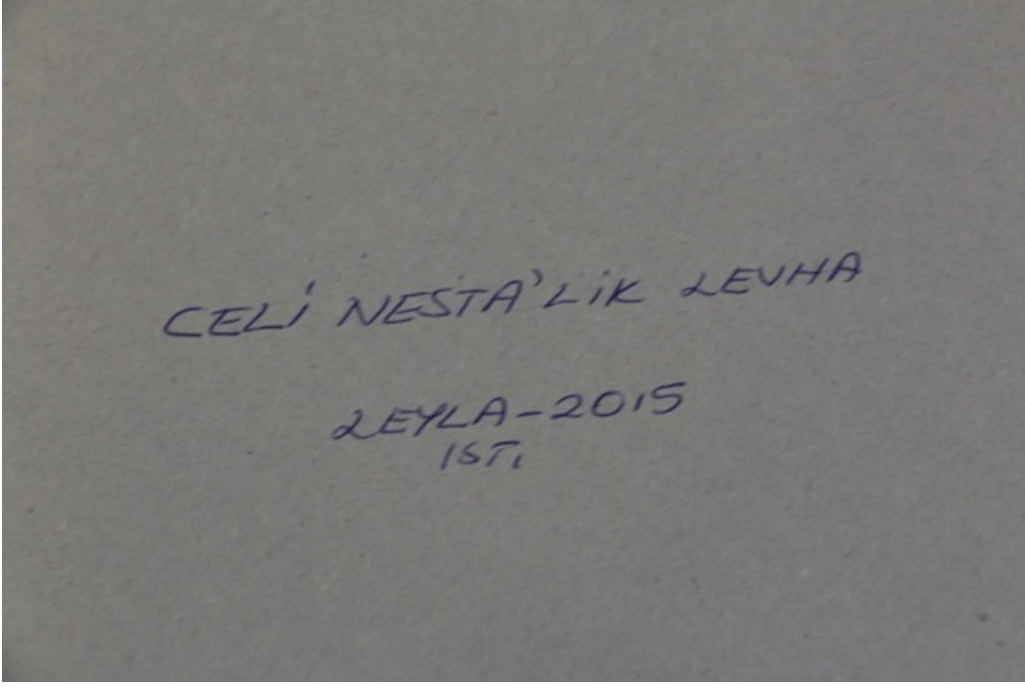 CELİ NESTA'LİK LEVHA
LEYLA-2015
IST.